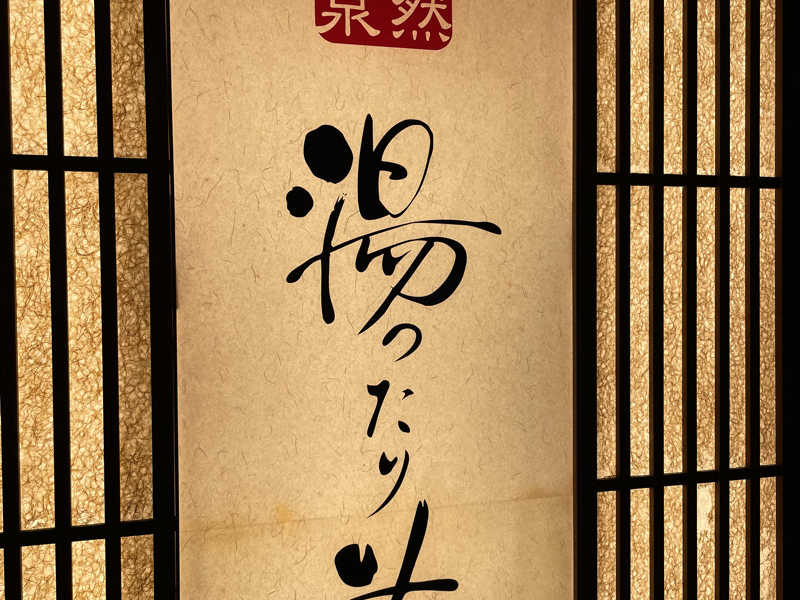 然
泉
湯ったり